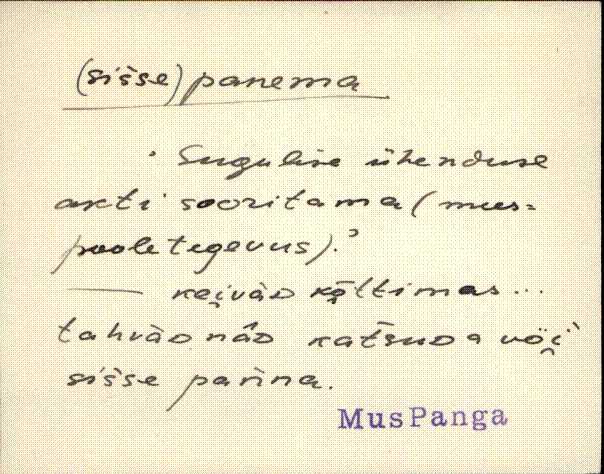 (sišse) panema
' Sugulise ühenduse
akti sooritama (mees-
poole tegevus).'
— kei̯vad kõ̭ltimas ...
tahvad nad katsuda või̯
sišse pańna.
MusPanga